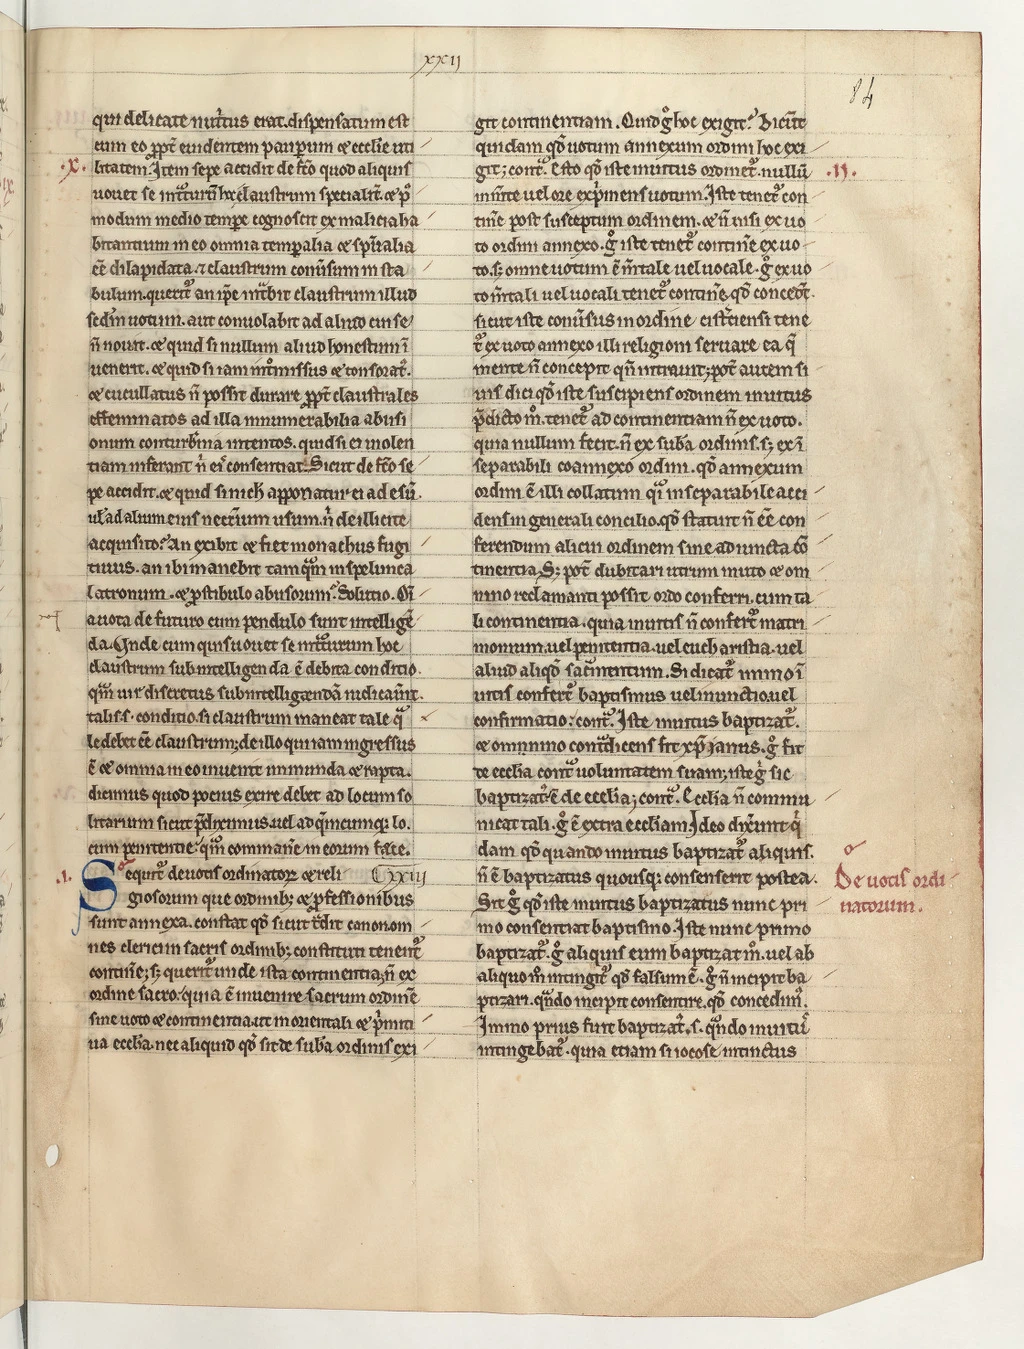 xxii
84
qui delicate nutˀtus erat. dispensatum est
cum eo ꝓpt̄ euidentem pauꝑum ⁊ ecclīe uti
.x. litatem. Item sepe accidit de fc̄o quod aliquis
uouet se claustrum specialit̄. ⁊ p̄
modum medio temꝑe cognoscit ex malicia ha
bitantium in eo omnia temꝑalia ⁊ spīr̄alia
eē dilapidata. ⁊ claustrum conūsum in sta
bulum. querit᷑ an ip̄e intͣbit claustrum illud
sedm̄ uotum. aut conuolabit ad aliud cui se
n̄ nouit. ⁊ quid si nullum aliud honestum ī
uenerit. ⁊ quid si iam intͦmissus ⁊ tonsorat᷑.
⁊ cucullatus n̄ possit durare ꝓpt̄ claustrales
effeminatos ad illa innumerabilia abusi
onum intentos. quid si ei uiolen
tiam inferant n̄ eiˢ consentiat. Sicut de fc̄o se
pe accidit. ⁊ quid si nich̄ apponatur ei ad esū.
ul̄ ad alium eius necc̄rium usum. n̄ de illicite
acquisito. An exibit ⁊ fiet monachus fugi
tiuus. an ibi manebit tamqͣm in spelunca
latronum. ⁊ ꝓstibulo abusorum. Solutio. Oī
a uota de futuro cum pendulo sunt intelligē
da. Unde cum quis uouet se intͣturum hoc
claustrum subintelligenda ē debita conditio.
qͣm uir discretus subintelligendā iudicauīt.
talis .s. conditio. si claustrum maneat tale qͣ
le debet eē claustrum; de illo qui iam ingressus
ē ⁊ omnia in eo inuenit immunda ⁊ rapta.
dicimus quod potius exire debet ad locum so
litarium sicut p̄diximus. uel ad qͣmcumqꝫ lo.
cum penitentie. qͣm commanē in eorum fece.
.i. Sequit᷑ de uotis ordinatoꝝ ⁊ reli Cxxiij
giosorum que ordinibꝫ ⁊ ꝓfessionibus
sunt annexa. constat qd̄ sicut canonom
nes clerici in sacris ordinibꝫ constituti tenent᷑
continē; sꝫ querit᷑ unde ista continentia; n̄ ex
ordine sacro. quia ē inuenire sacrum ordinē
sine uoto ⁊ continentia. ut in orientali ⁊ pͥmiti
ua ecclīa. nec aliquid qd̄ sit de subᵃ ordinis exi
git continentiam. Quid gͦ hoc exigit? Dicūt
quidam qd̄ uotum annexum ordini hoc exi
git; contͣ. Esto qd̄ iste inuitus ordinet᷑. nullū .ij.
mīnte uel ore exp̄mens uotum. Iste tenet᷑ con
tinē post susceptum ordinem. ⁊ n̄ nisi ex uo
to ordini annexo. gͦ iste tenet᷑ continē ex uo
to. sꝫ omne uotum ē mītale uel uocale. gͦ ex uo
to mītali uel uocali tenet᷑ continē. qd̄ concedit᷑.
sicut iste conūsus in ordine cistˀciensi tene
t᷑ ex uoto annexo illi religioni seruare ea q̄
mente n̄ concepit qn̄ intrauit; pōt autem si
uis dici qd̄ iste suscipiens ordinem inuitus
p̄dicto m̊. tenet᷑ ad continentiam n̄ ex uoto.
quia nullum fecit. n̄ ex subᵃ ordinis. sꝫ ex ī
separabili coannexo ordini. qd̄ annexum
ordini ē illi collatum qͣi inseparabile acci
dens in generali concilio. qd̄ statuit n̄ eē con
ferendum alicui ordinem sine adiuncta cō
tinentia. Sꝫ pōt dubitari utrum inuito ⁊ om
nino reclamanti possit ordo conferri. cum ta
li continentia. quia inuitis n̄ confert᷑ matri
monium. uel penitentia. uel eucharistia. uel
aliud aliqd̄ sacͣmentum. Si dicat᷑ immo ī
uitis confert᷑ baptismus uel inunctio. uel
confirmatio: contͣ. Iste inuitus baptizat᷑.
⁊ omnino contͣdicens fit xp̄ianus. gͦ fit
de ecclīa contͣ uoluntatem suam; iste gͦ sic
baptizatˀ ē de ecclīa; contͣ. Ecclīa n̄ commu
nicat tali. gͦ ē extra eccliam. Ideo dixerunt qͥ
dam qd̄ quando inuitus baptizat᷑ aliquis.
n̄ ē baptizatus quousqꝫ consenserit postea.
De uotis ordi
natorum.
Sit gͦ qd̄ iste inuitus baptizatus nunc pri
mo consentiat baptismo. Iste nunc primo
baptizat᷑. gͦ aliquis eum baptizat m̊. uel ab
aliquo m̊ intingit᷑ qd̄ falsum ē. gͦ n̄ incipit ba
ptizari. qn̄do incipit consentire. qd̄ concedimˀ.
Immo prius fuit baptizatˀ .s. qn̄do inuitˀ
intingebat᷑. quia etiam si iocose intinctus